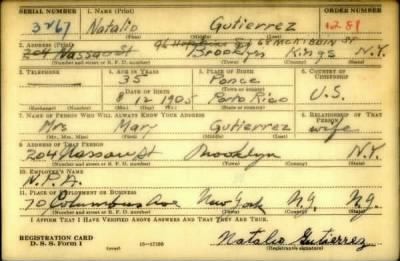 SERIAL NUMBER 1. NAME (Print) ORDER NUMBER
3267 Natalio Gutierrez 1281
2. ADDRESS (Print)
68 McKibbin St
204 Nassau St Brooklyn Kings N.Y.
(Number and street or R. F. D. number) (Town) (County) (State)
3. TELEPHONE 4. AGE IN YEARS 5. PLACE OF BIRTH 6. COUNTRY OF CITIZENSHIP
35 Ponce
DATE OF BIRTH (Town or county)
8 12 1905 Porto Rico U.S.
(Exchange) (Number) (Mo.) (Day) (Yr.) (State or country)
7. NAME OF PERSON WHO WILL ALWAYS KNOW YOUR ADDRESS 8. RELATIONSHIP OF THAT PERSON
Mrs Mary Gutierrez wife
(Mr., Mrs., Miss) (First) (Middle) (Last)
9. ADDRESS OF THAT PERSON
204 Nassau St Brooklyn N.Y.
(Number and street or R. F. D. number) (Town) (County) (State)
10. EMPLOYER'S NAME
11. PLACE OF EMPLOYMENT OR BUSINESS
70 Columbus Ave New York N.Y. N.Y.
(Number and street or R. F. D. number) (Town) (County) (State)
I AFFIRM THAT I HAVE VERIFIED ABOVE ANSWERS AND THAT THEY ARE TRUE.
REGISTRATION CARD
D. S. S. Form 1 16-17105 Natalio Gutierrez
(Registrant's signature)